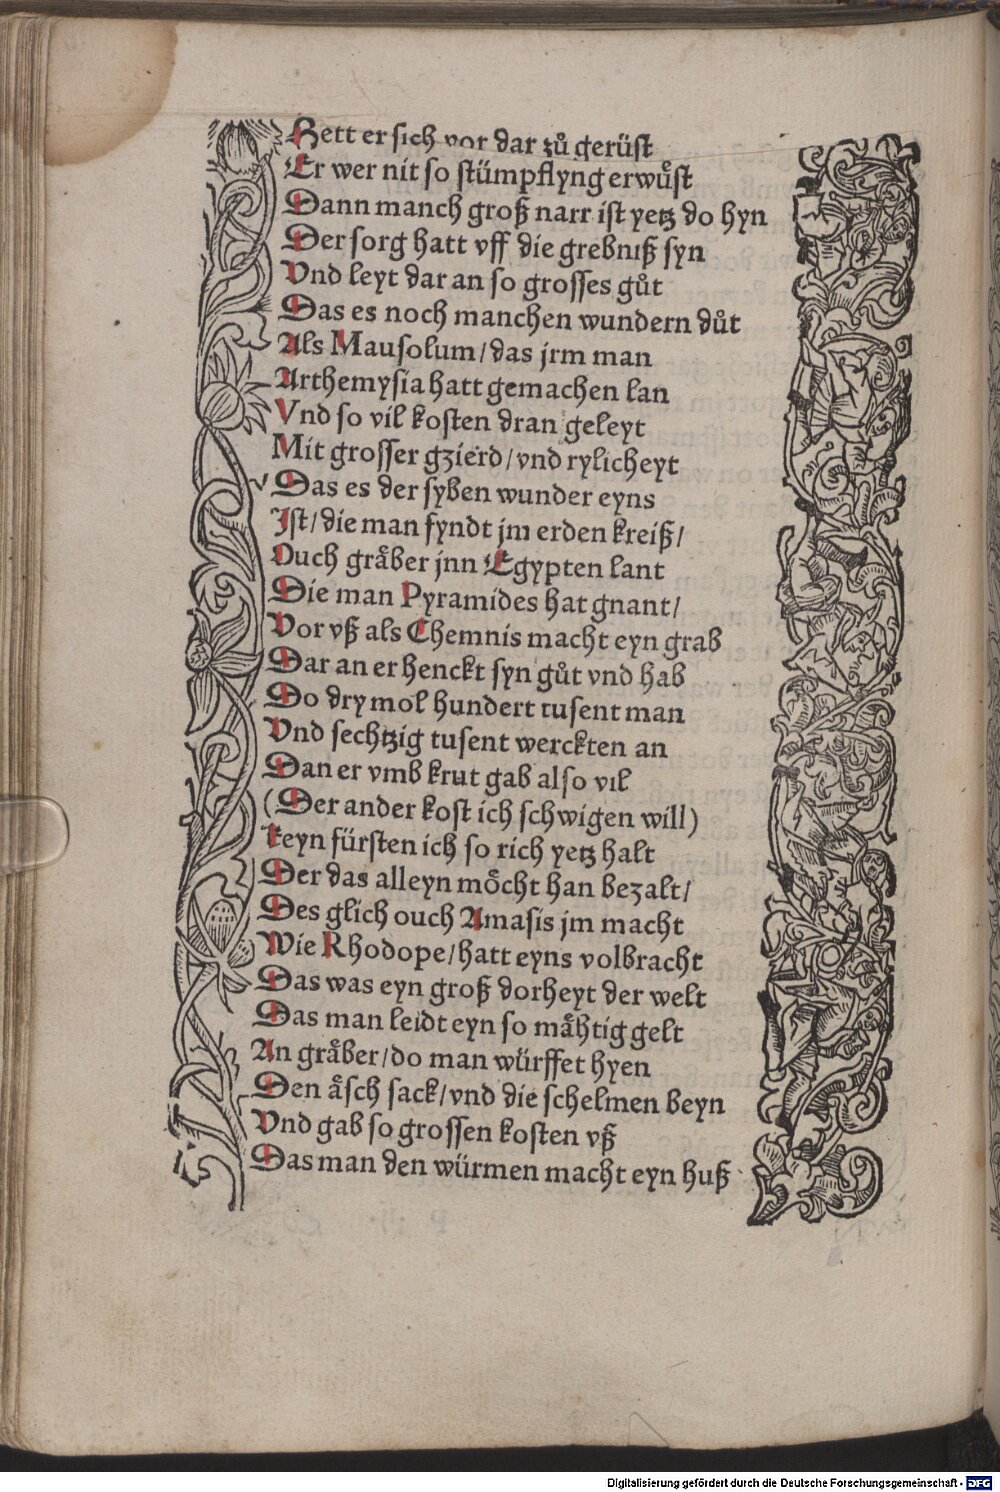 Hett er sich vor dar zů gerüst
Er wer nit so stümpflyng erwůst
Dann manch groß narr ist yetz do hyn
Der sorg hatt vff die grebniß syn
Vnd leyt dar an so grosses gůt
Das es noch manchen wundern důt
Als Mausolum / das jrm man
Arthemysia hatt gemachen lan
Vnd so vil kosten dran geleyt
Mit grosser gzierd / vnd rylicheyt
Das es der syben wunder eyns
Jst / die man fyndt jm erden kreiß /
Ouch gråber jnn Egypten lant
Die man Pyramides hat gnant /
Vor vß als Chemnis macht eyn grab
Dar an er henckt syn gůt vnd hab
Do dry mol hundert tusent man
Vnd sechtzig tusent werckten an
Dan er vmb krut gab also vil
(Der ander kost ich schwigen will)
keyn fürsten ich so rich yetz halt
Der das alleyn mőcht han bezalt /
Des glich ouch Amasis jm macht
Wie Rhodope / hatt eyns volbracht
Das was eyn groß dorheyt der welt
Das man leidt eyn so måhtig gelt
An gråber / do man würffet hyen
Den åsch sack / vnd die schelmen beyn
Vnd gab so grossen kosten vß
Das man den würmen macht eyn huß
Digitalisierung gefördert durch die Deutsche Forschungsgemeinschaft - DFG